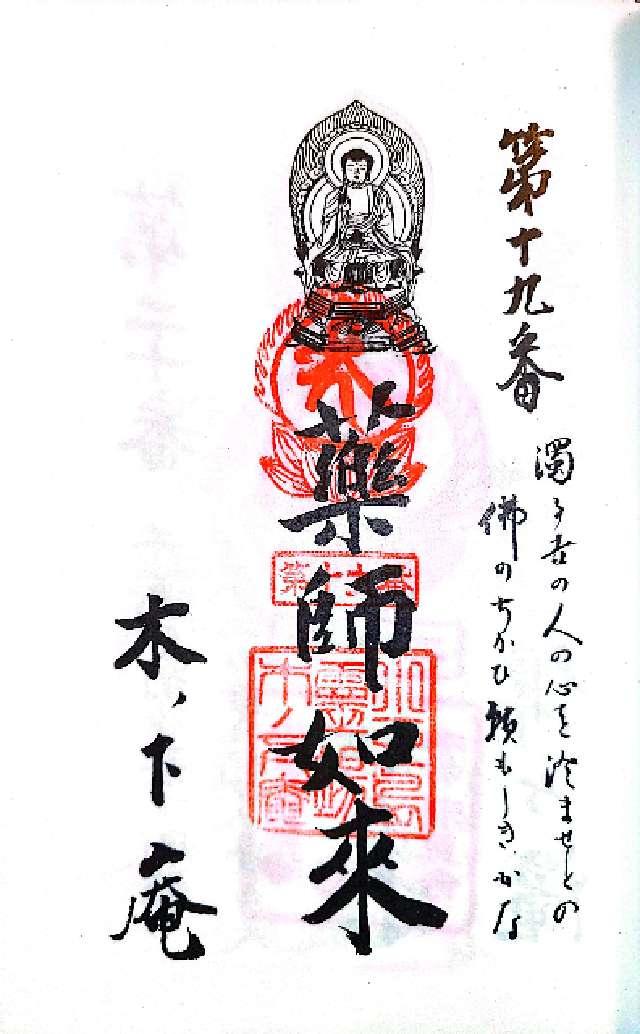 第十九番
濁る世の人の心を澄ませとの
佛のちかひ頼もしきかな
藥師如來
第十九番
木ノ下庵